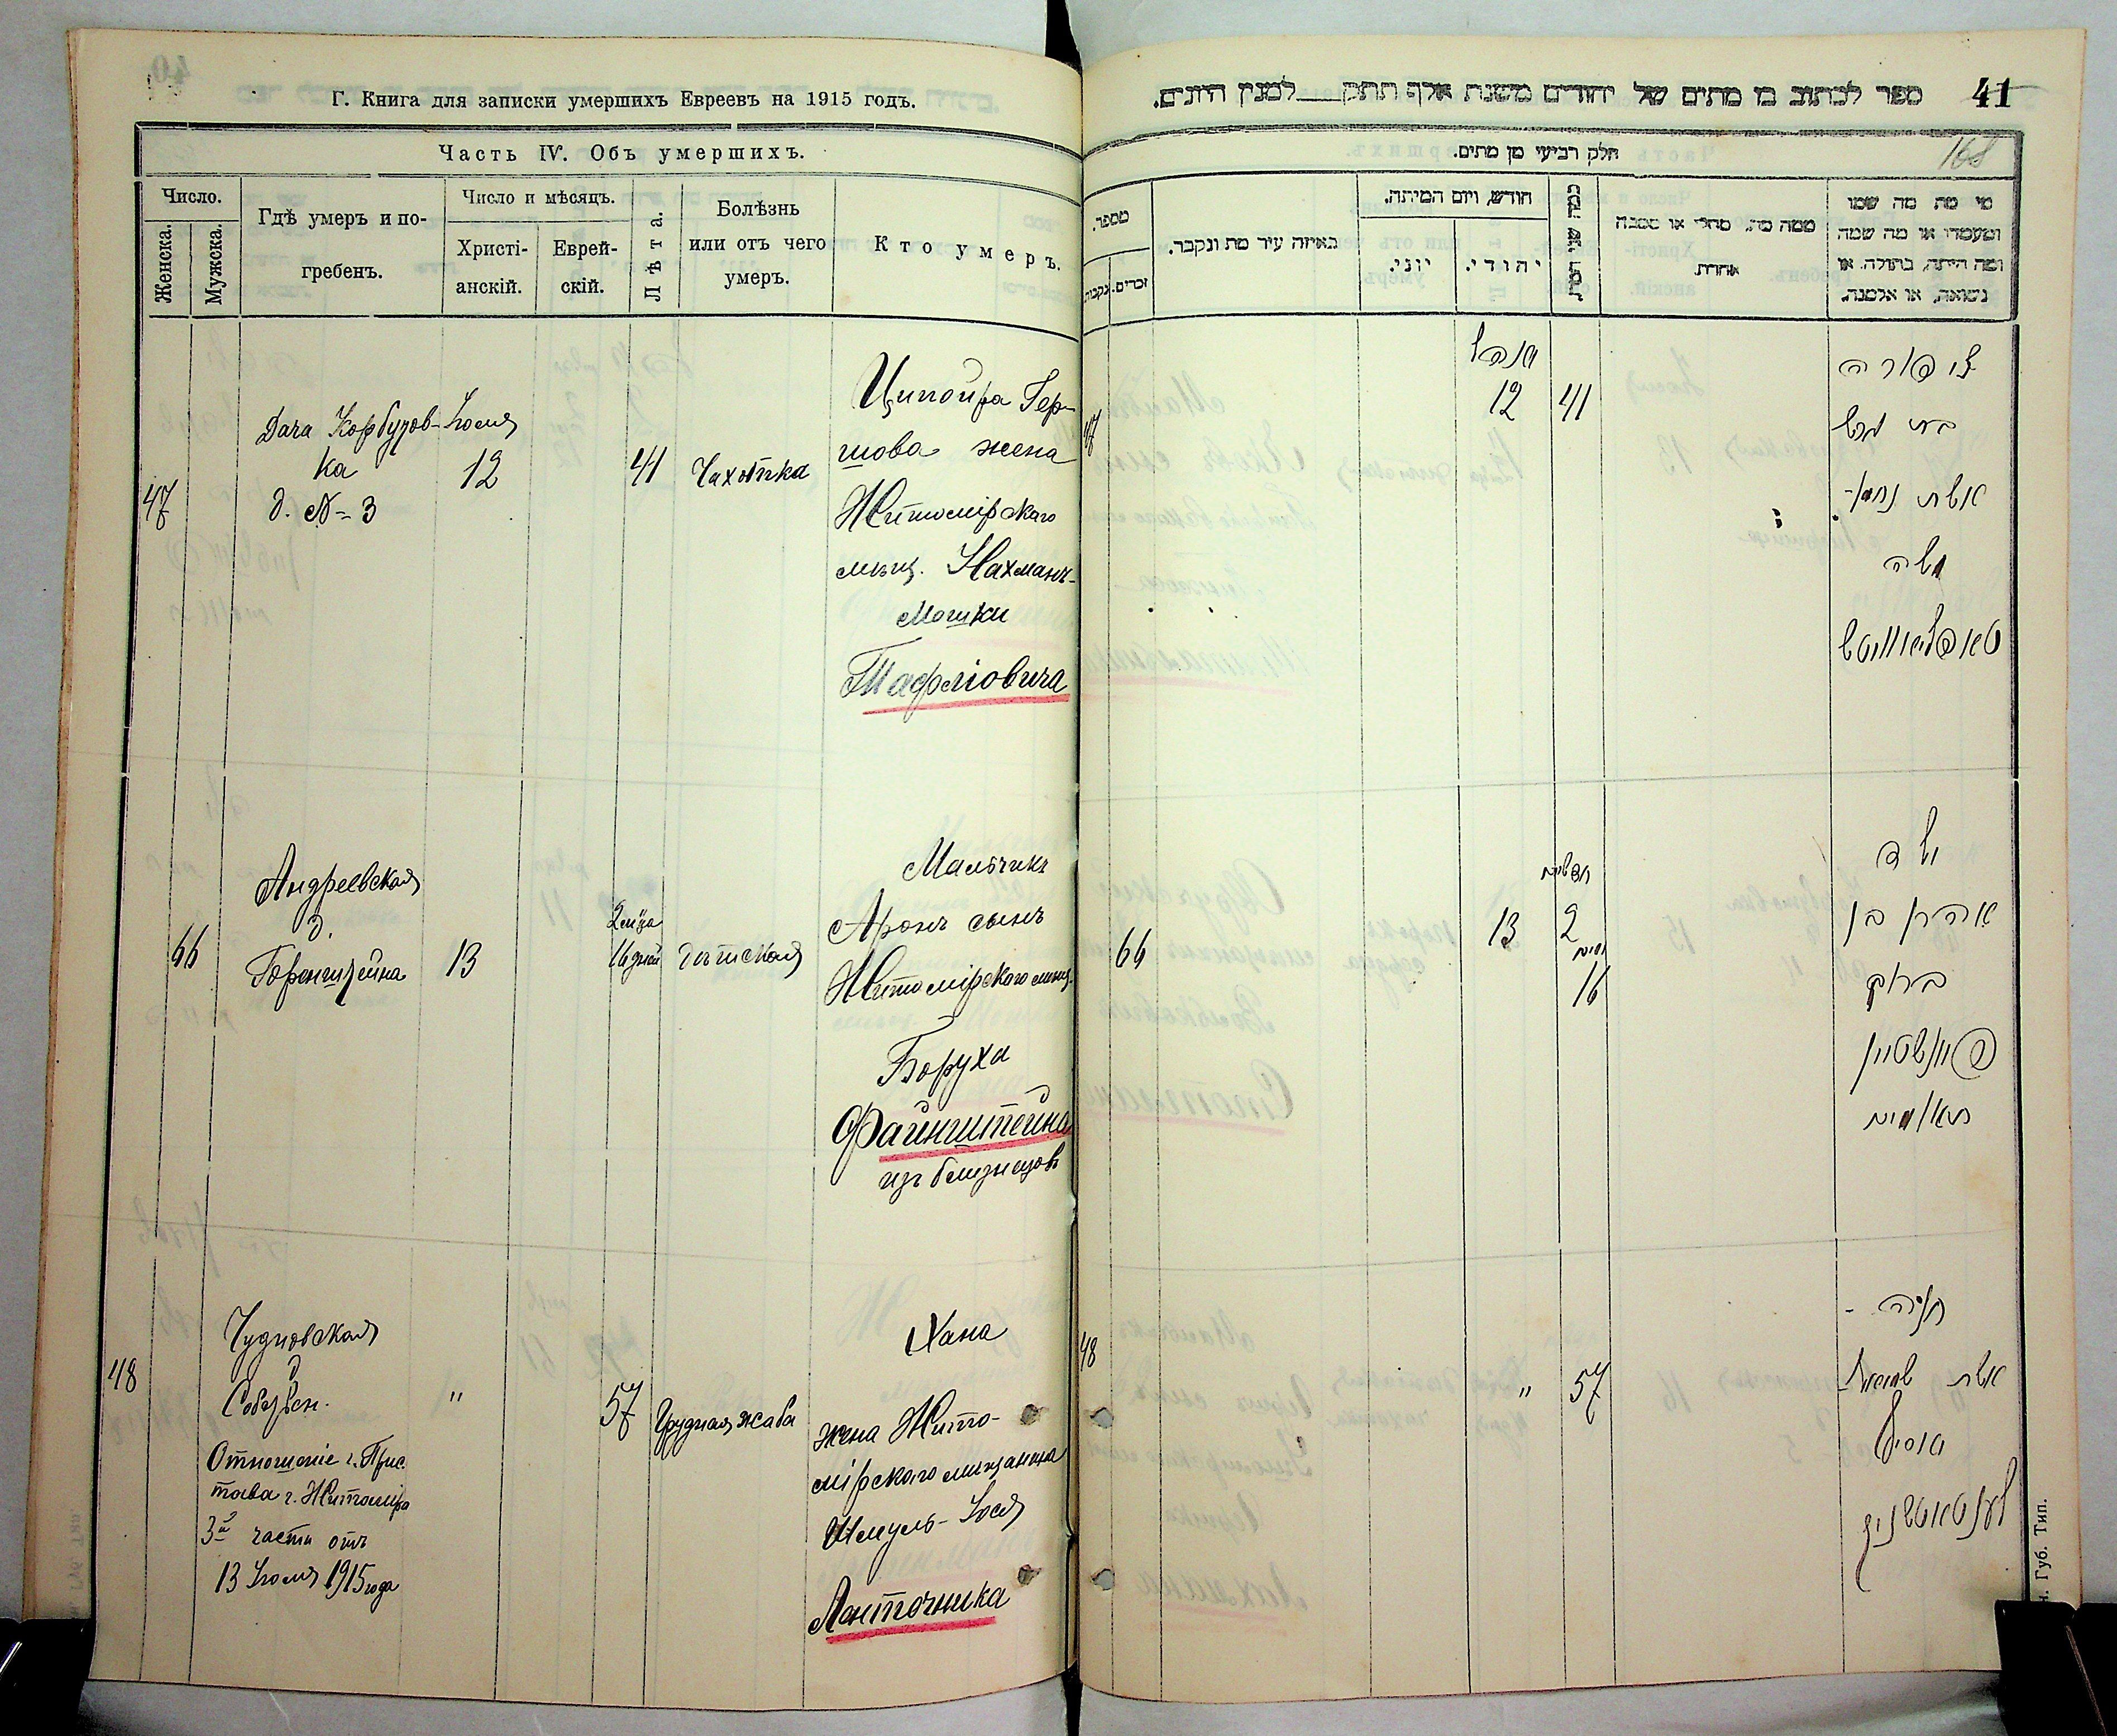 Г. Книга для записки умершихъ Евреевъ на 1915 годъ.
Часть IV. Объ умершихъ.
Число.
Женска.
Мужска.
Гдѣ умеръ и по-
гребенъ.
Число и мѣсяцъ.
Христі-
анскій.
Еврей-
скій.
Лѣта.
Болѣзнь
или отъ чего
умеръ.
Кто умеръ.
47
Дача Корбутов-
ка
д. № 3
Іюля
12
41
Чахотка
Ципойра Гер-
шова жена
Житомірскаго
мѣщ. Нахманъ-
Мошки
Тафліовича
66
Андреевская
д.
Горенштейна
13
2 м-ца
16 дней
Дѣтская
Мальчикъ
Аронъ сынъ
Житомірскаго мѣщ.
Боруха
Файнштейна
изъ близнецовъ
48
Чудновская
д
Собствен.
Отношеніе г. Прис
тава г. Житоміра
3й части отъ
13 Іюля 1915 года
"
57
Грудная жаба
Хана
жена Жито-
мірскаго мѣщанина
Шмуль-Іося
Ленточника
41
ספר לכתוב בו מתים של יהודים משנת אלף תתק למנין היונים.
168
חלק רביעי מן מתים.
מספר.
נקבות.
זכרים.
באיזה עיר מת ונקבר.
חודש, ויום המיתה.
יוני.
יהודי.
כמה שני המת
ממה מת, מחלי או מסבה
אחרת.
מי מת מה שמו
ומעמדו או מה שמה
ומה היתה, בתולה, או
נשואה, או אלמנה.
47
12
41
ציפורה
בת הרש
אשת נחמן-
משה
טאפליאוויטש
66
13
חדשים
2
ימים
16
ילד
אהרן בן
ברוך
פיינשטיין
תאומים
48
"
57
חנה -
אשת שמואל-
יוסף
לענטאטשניק
. Губ. Тип.